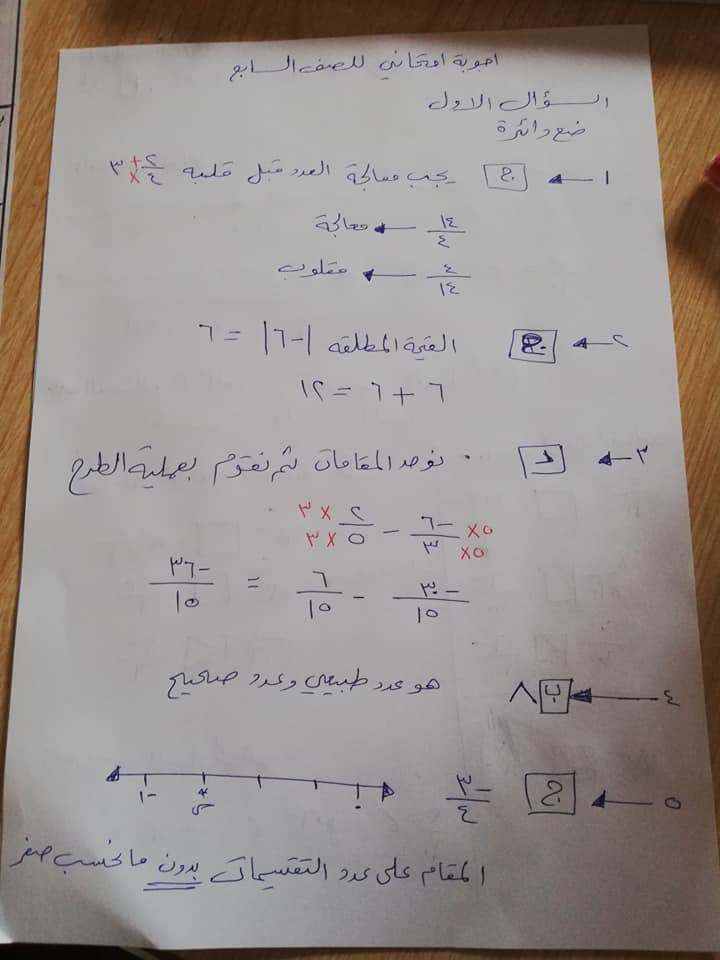 اجوبة امتحاني للصف السابع
السؤال الاول
ضع دائرة
١ ← ج يجب معالجة العدد قبل قلبه ٢/٤ + × ٣
١٤/٤ ← معالجة
٤/١٤ ← مقلوب
٢ ← ج القيمة المطلقه |-٦| = ٦
٦ + ٦ = ١٢
٣ ← د . نوحد المقامات ثم نقوم بعملية الطرح
×٥ -٦/٣ ×٥ - ٣× ٢/٥ ٣×
-٣٠/١٥ - ٦/١٥ = -٣٦/١٥
٤ ← ب ٨ هو عدد طبيعي وعدد صحيح
٥ ← ج -٣/٤
-١ س ٠
المقام على عدد التقسيمات بدون ما نحسب صفر